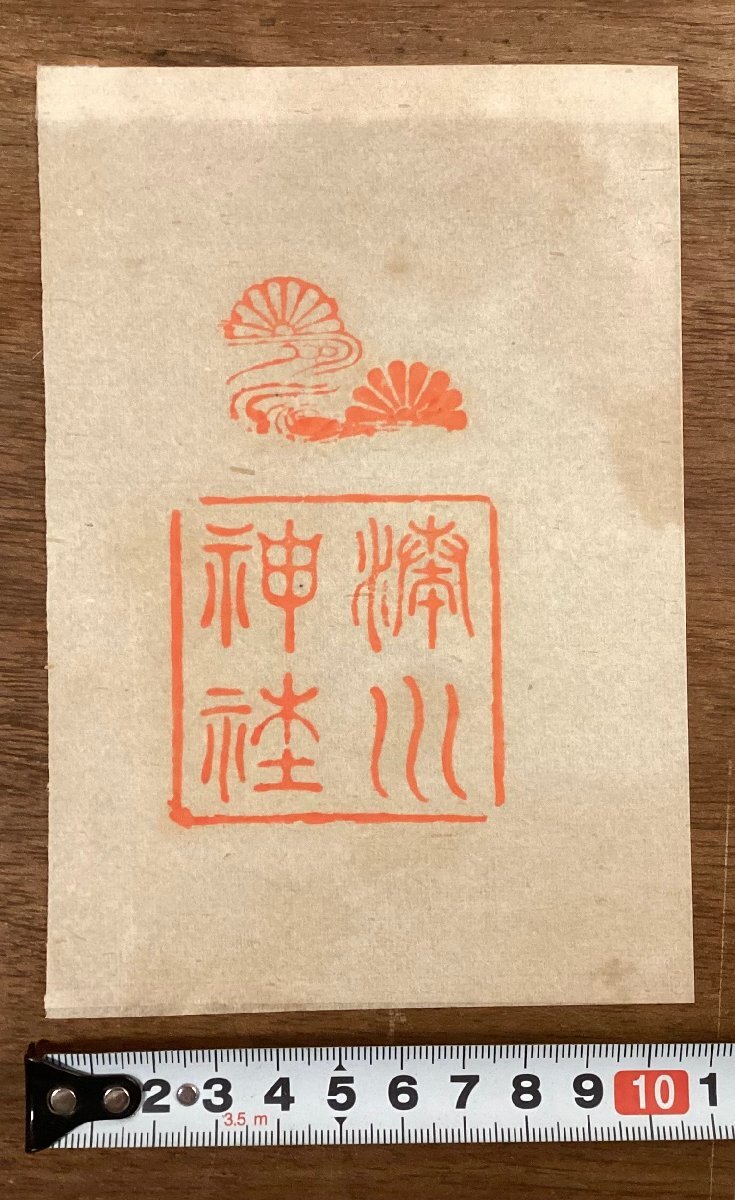 湊川
神社
2 3 4 5 6 7 8 9 10 1
3.5 m